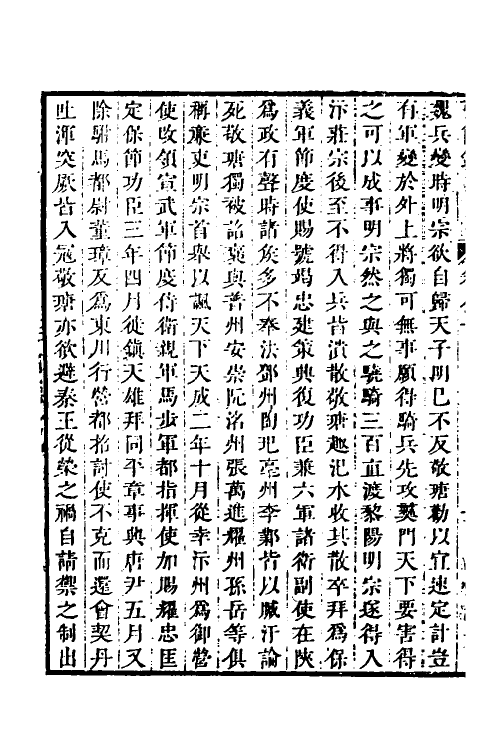 魏兵變時明宗欲自歸天子明已不反敬瑭勸以宜速定計豈
有軍變於外上將獨可無事願得騎兵先攻夷門天下要害得
之可以成事明宗然之與之驍騎三百直渡黎陽明宗遂得入
汴莊宗後至不得入兵皆潰散敬瑭趣汜水收其散卒拜爲保
義軍節度使賜號竭忠建策興復功臣兼六軍諸衛副使在陝
爲政有聲時諸侯多不奉法鄧州陶玘亳州李鄴皆以贓汙論
死敬瑭獨被詔褒與普州安崇阮洺州張萬進耀州孫岳等俱
稱廉吏明宗首舉以諷天下天成二年十月從幸汴州爲御營
使改領宣武軍節度侍衛親軍馬步軍都指揮使加賜耀忠匡
定保節功臣三年四月徙鎮天雄拜同平章事興唐尹五月又
除駙馬都尉董璋反爲東川行營都招討使不克而還會契丹
吐渾突厥皆入寇敬瑭亦欲避秦王從榮之禍自請禦之制出